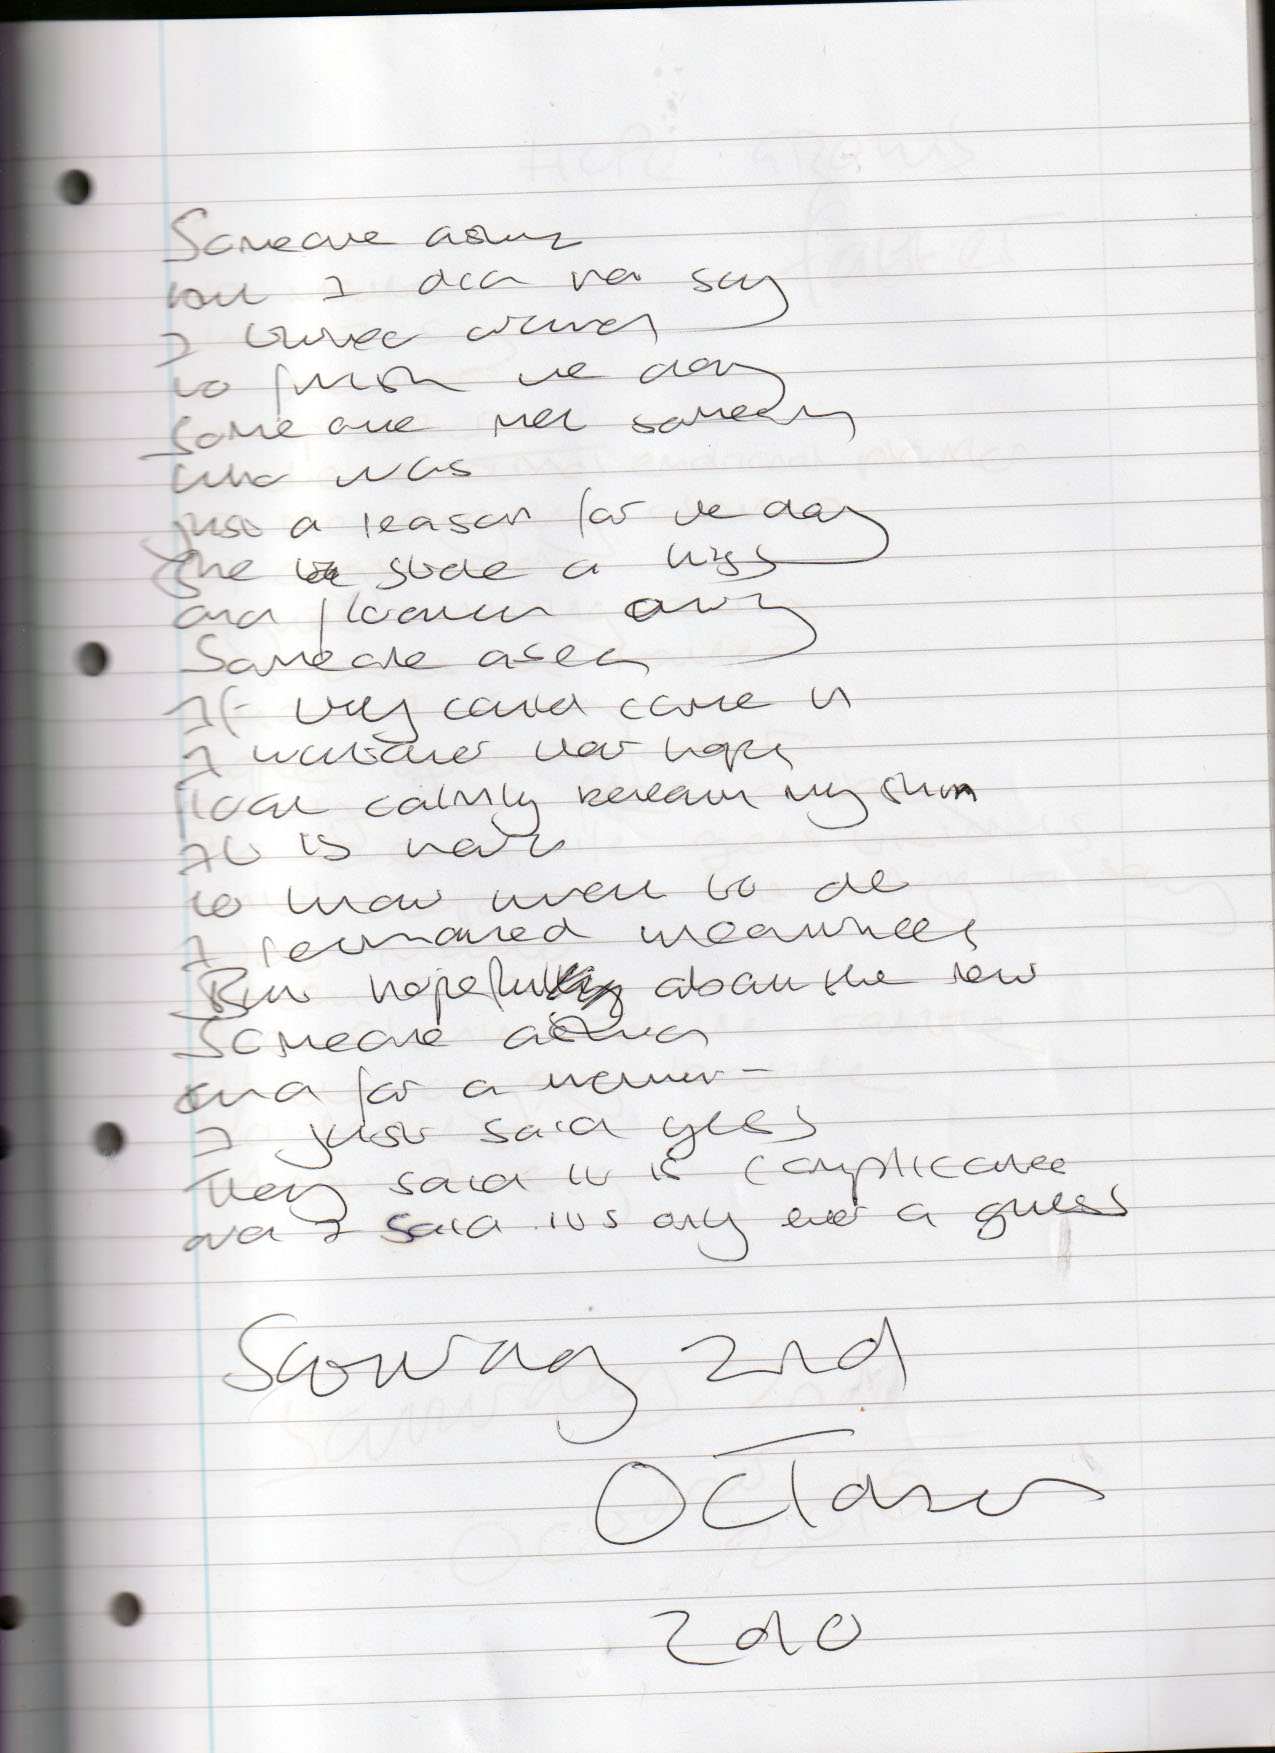 Someone asking
but I did not say
I turned around
to finish the day
Someone met somebody
who was
just a reason for the day
She stole a kiss
and flown away
Someone asked
If they could come in
I that hope
look calmly beneath my skin
It is hard
to know what to do
I remained
But hopefully about the new
Someone asked
and for a moment -
I just said yes
They said it is complicated
and I said its only ever a guess
Saturday 2nd
October
2010